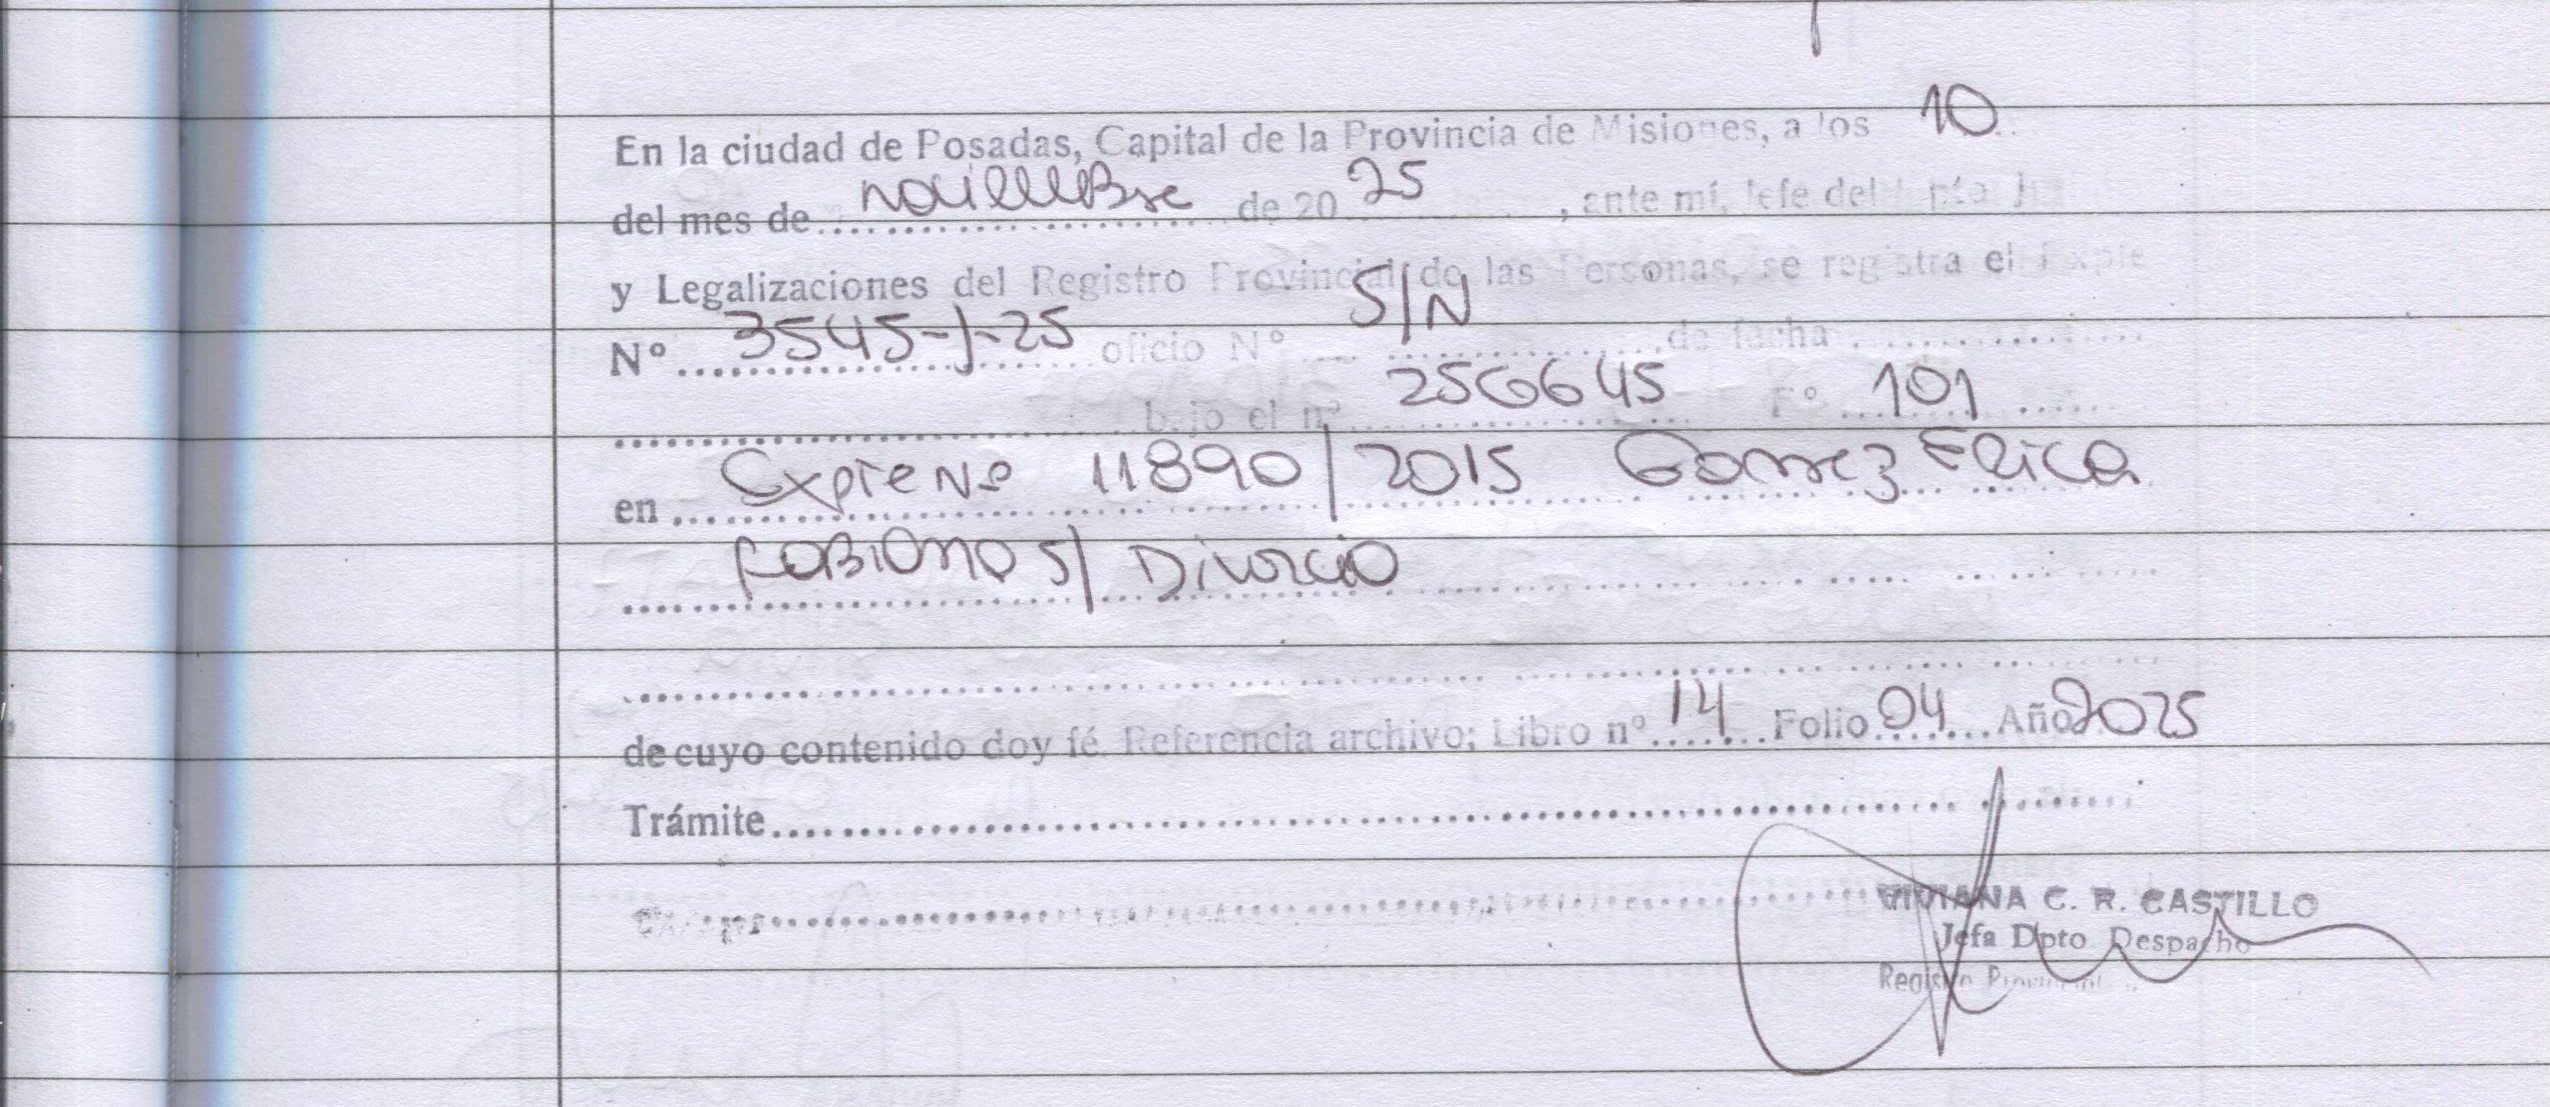 En la ciudad de Posadas, Capital de la Provincia de Misiones, a los 10
del mes de noviembre de 20 25, ante mí, Jefe del
y Legalizaciones del Registro Provincial de las Personas, se registra el Expte
Nº 3545-J-25 oficio Nº S/N de fecha
bajo el nº 256645 Fº 101
en Expte Nº 11890/2015 Gomez Erica
Fabiana S/ Divorcio
de cuyo contenido doy fé. Referencia archivo; Libro nº 14 Folio 04 Año 2025
Trámite
VIVIANA C. R. CASTILLO
Jefa Dpto Despacho
Registro Provincial